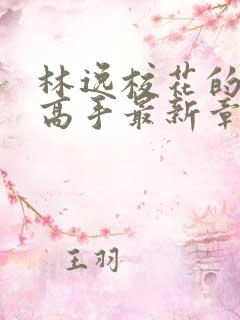 林逸校花的
高手最新章
王羽